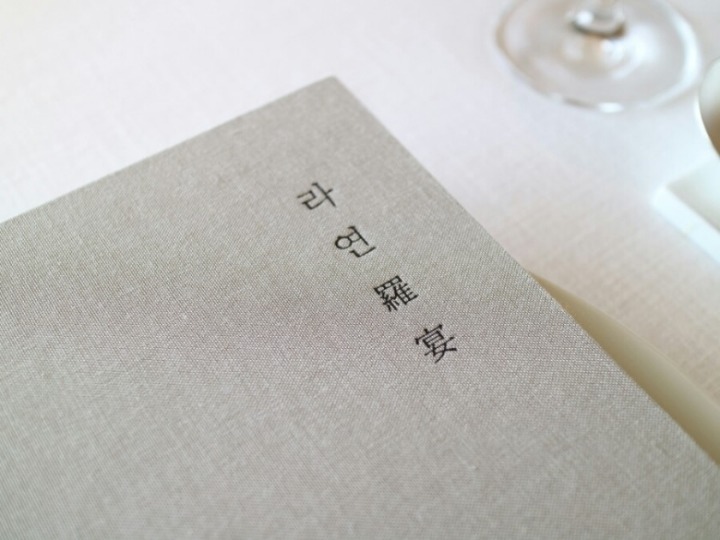 라연羅宴